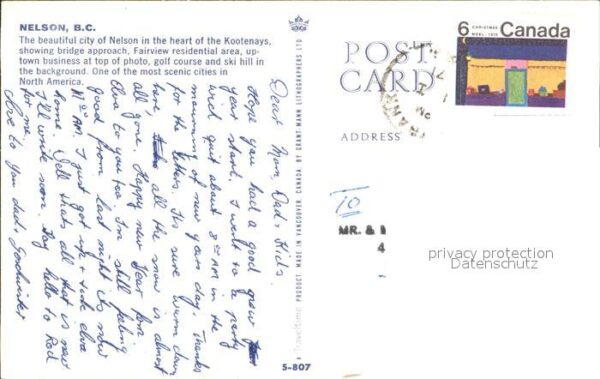 NELSON, B.C.
The beautiful city of Nelson in the heart of the Kootenays,
showing bridge approach, Fairview residential area, up-
town business at top of photo, golf course and ski hill in
the background. One of the most scenic cities in
North America.
Dear Mom, Dad & Kids.
Hope you had a good
year start. I went to a party
until quit about 8 00 AM in the
morning of new years day. Thanks
for the letters. It's sure warm down
here, all the snow is almost
all gone. Happy new Year from
Elva to you too. I'm still feeling
good from last night its now
11 20 AM. I just got up & took elva
home. Well thats all that is new
for me. I'll write soon. Say hello to Rod
Love to you dad.
TravelTime PRODUCT MADE IN VANCOUVER, CANADA, BY GRANT-MANN LITHOGRAPHERS LTD
S-807
POST
CARD
ADDRESS
6 CHRISTMAS
NOËL 1970
Canada
TO
MR. &
4
privacy protection
Datenschutz